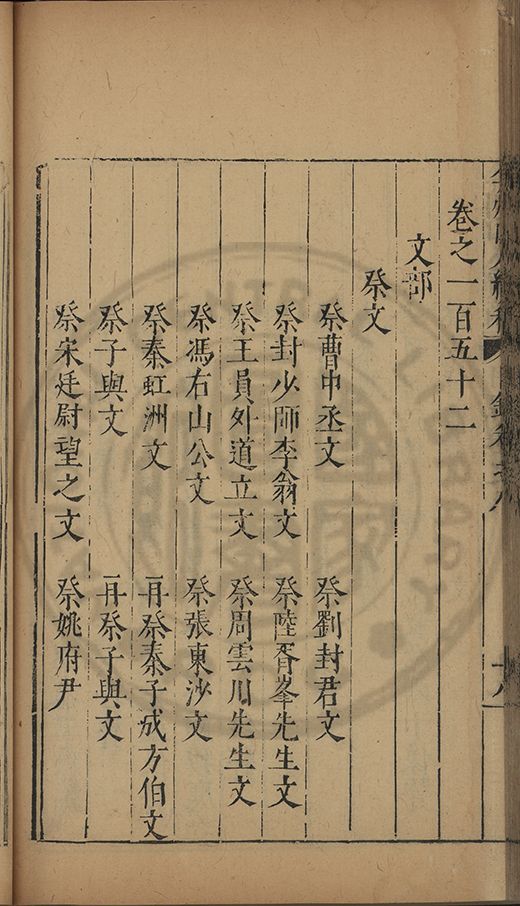 卷之一百五十二
文部
祭文
祭曹中丞文 祭劉封君文
祭封少師李翁文 祭陸胥峯先生文
祭王員外道立文 祭周雲川先生文
祭馮右山公文 祭張東沙文
祭秦虹洲文 再祭秦子成方伯文
祭子與文 再祭子與文
祭宋廷尉望之文 祭姚府尹